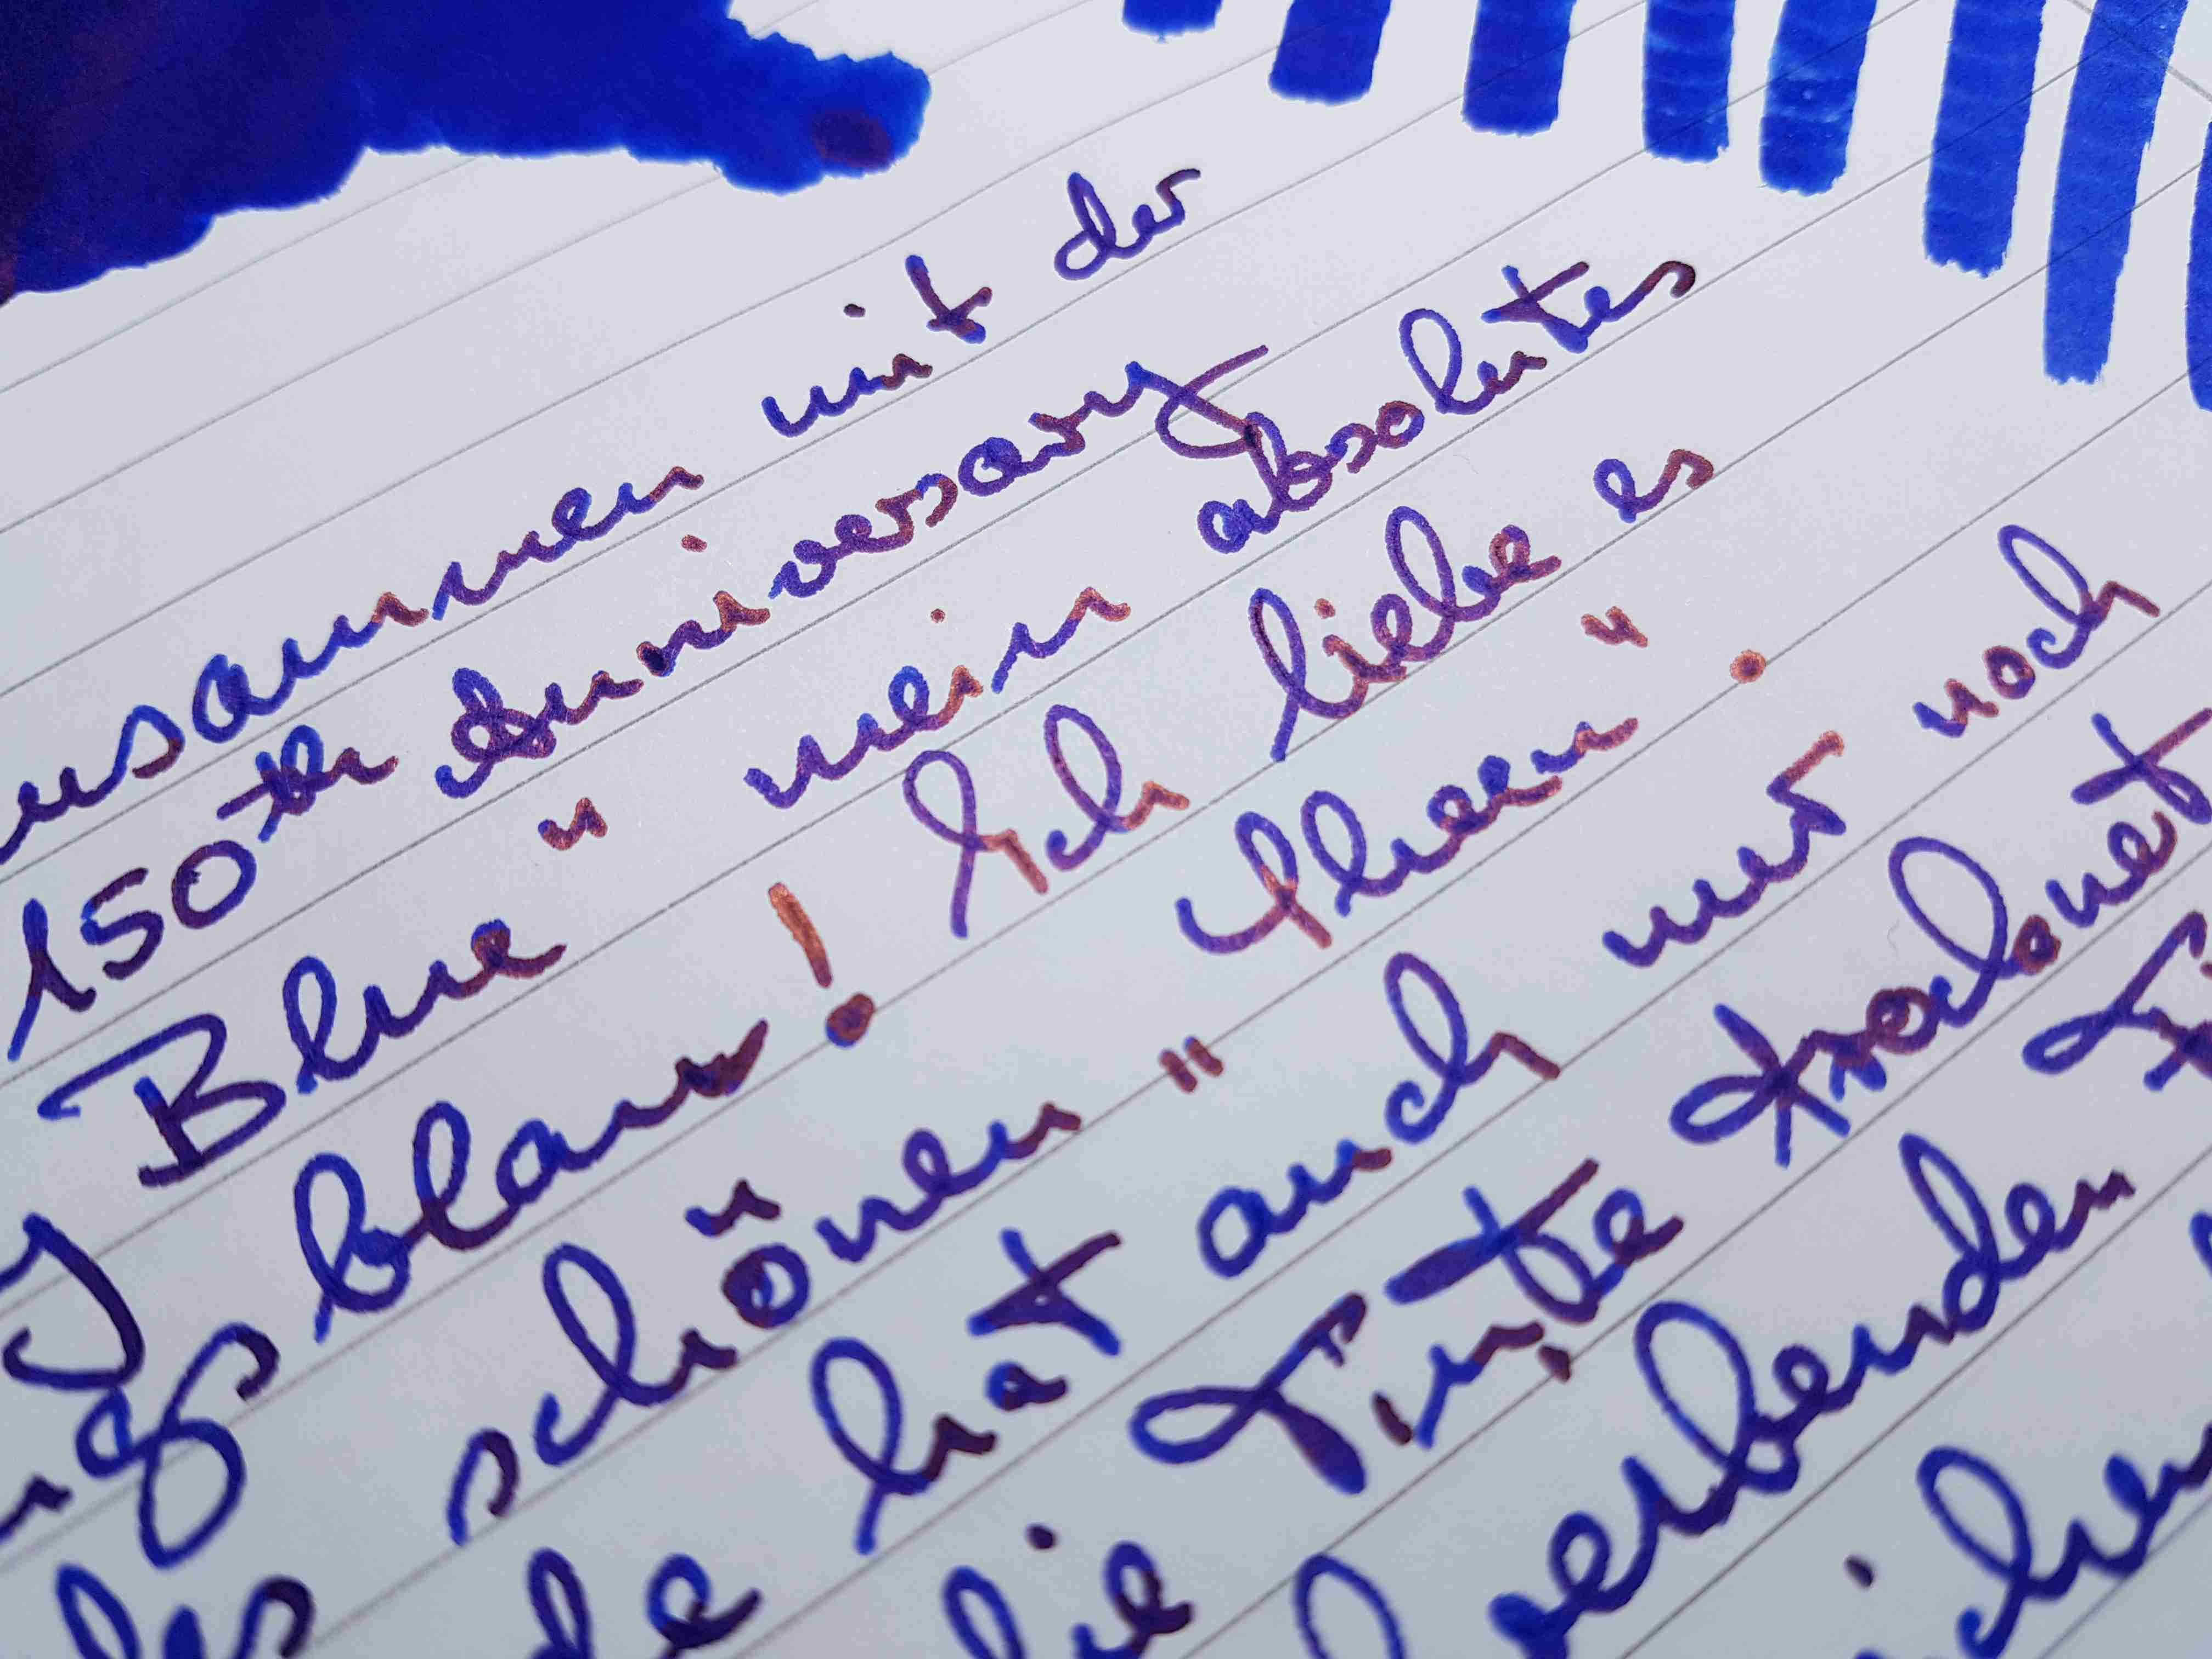 usammen mit der
150th Anniversary
Blue" mein absolutes
ngsblau! Ich liebe es
les schönen "Sheen".
de hat auch nur noch
die Tinte trocknet